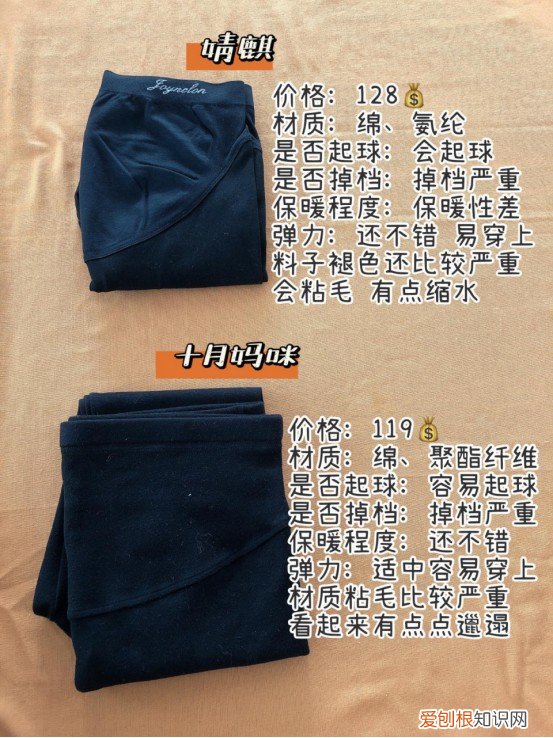 婧麒
Joynclon
价格：128💰
材质：绵、氨纶
是否起球：会起球
是否掉档：掉档严重
保暖程度：保暖性差
弹力：还不错 易穿上
料子褪色还比较严重
会粘毛 有点缩水
十月妈咪
价格：119💰
材质：绵、聚酯纤维
是否起球：容易起球
是否掉档：掉档严重
保暖程度：还不错
弹力：适中容易穿上
材质粘毛比较严重
看起来有点点邋遢
爱刨根知识网